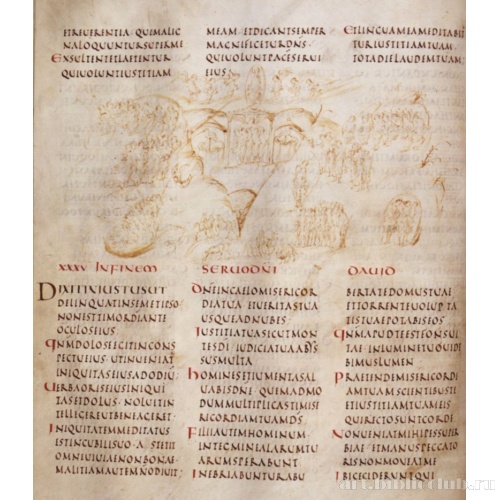 ETREUERENTIA QUIMALIG
NALOQUUNTURSUPERME
EXSULTENTETLAETENTUR
QUIUOLUNTIUSTITIAM
MEAM ETDICANTSEMPER
MAGNIFICETURDNS
QUIUOLUNTPACESERUI
EIUS
ETLINGUAMEAMEDITABI
TURIUSTITIAMTUAM
TOTADIELAUDEMTUAM
XXXV INFINEM SERUODNI DAUID
DIXITINIUSTUSUT
DELINQUATINSEMETIPSO
NONESTTIMORDIANTE
OCULOSEIUS
QNMDOLOSEEGITINCONS
PECTUEIUS UTINUENIAT
INIQUITASEIUSADODIU
UERBAORISEIUSINIQUI
TASETDOLUS NOLUITIN
TELLIGEREUTBENEAGERET
INIQUITATEMMEDITATUS
ESTINCUBILISUO ASTETIT
OMNIUIAENONBONAE
MALITIAMAUTEMNODIUIT
DNEINCAELOMISERICOR
DIATUA ETUERITASTUA
USQUEADNUBES
IUSTITIATUASICUTMON
TESDI IUDICIATUAABIS
SUSMULTA
HOMINESETIUMENTASAL
UABISDNE QUEMADMO
DUMMULTIPLICASTIMISE
RICORDIAMTUAMDS
FILIIAUTEMHOMINUM
INTEGMINEALARUMTU
ARUMSPERABUNT
INEBRIABUNTURABU
BERTATEDOMUSTUAE
ETTORRENTEUOLUPTA
TISTUAEPOTABISEOS
QNMAPUDTEESTFONSUI
TAE INLUMINETUOUIDE
BIMUSLUMEN
PRAETENDEMISERICORDI
AMTUAMSCIENTIBUSTE
ETIUSTITIAMTUAMEIS
QUIRECTOSUNTCORDE
NONUENIATMIHIPESSUPER
BIAE ETMANUSPECCATO
RISNONMOUEATME
IBICECIDERUNTQUI
art.biblioclub.ru